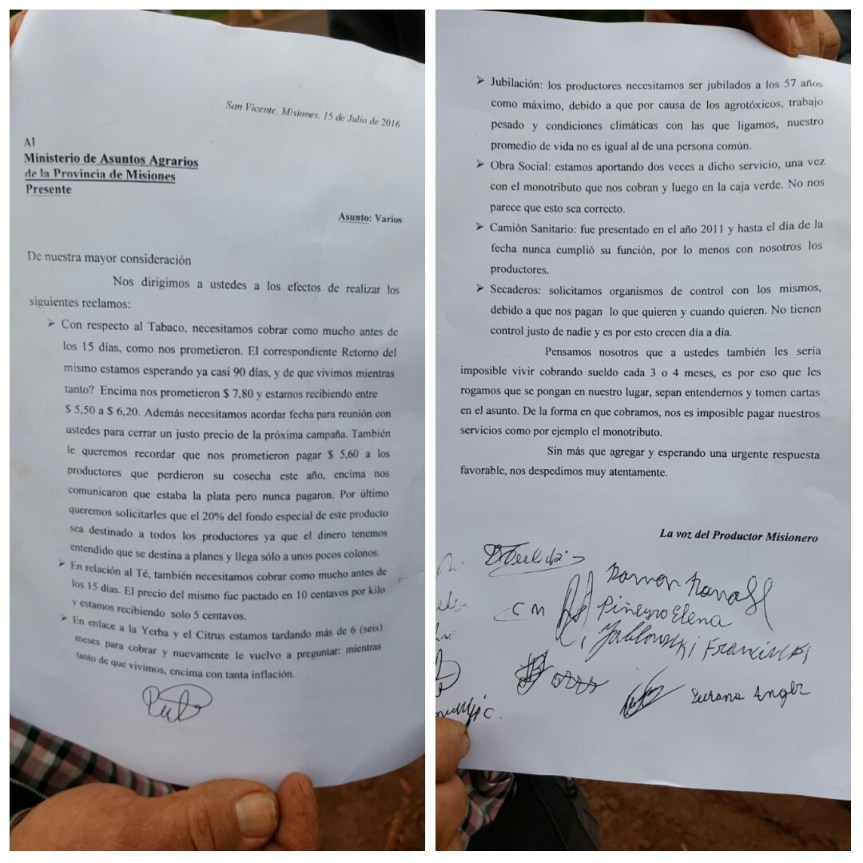 San Vicente, Misiones, 15 de Julio de 2016
Al
Ministerio de Asuntos Agrarios
de la Provincia de Misiones
Presente
Asunto: Varios
De nuestra mayor consideración
Nos dirigimos a ustedes a los efectos de realizar los
siguientes reclamos:
➢ Con respecto al Tabaco, necesitamos cobrar como mucho antes de
los 15 días, como nos prometieron. El correspondiente Retorno del
mismo estamos esperando ya casi 90 días, y de que vivimos mientras
tanto? Encima nos prometieron $ 7,80 y estamos recibiendo entre
$ 5,50 a $ 6,20. Además necesitamos acordar fecha para reunión con
ustedes para cerrar un justo precio de la próxima campaña. También
le queremos recordar que nos prometieron pagar $ 5,60 a los
productores que perdieron su cosecha este año, encima nos
comunicaron que estaba la plata pero nunca pagaron. Por último
queremos solicitarles que el 20% del fondo especial de este producto
sea destinado a todos los productores ya que el dinero tenemos
entendido que se destina a planes y llega sólo a unos pocos colonos.
➢ En relación al Té, también necesitamos cobrar como mucho antes de
los 15 días. El precio del mismo fue pactado en 10 centavos por kilo
y estamos recibiendo solo 5 centavos.
➢ En enlace a la Yerba y el Citrus estamos tardando más de 6 (seis)
meses para cobrar y nuevamente le vuelvo a preguntar: mientras
tanto de que vivimos, encima con tanta inflación.
➢ Jubilación: los productores necesitamos ser jubilados a los 57 años
como máximo, debido a que por causa de los agrotóxicos, trabajo
pesado y condiciones climáticas con las que ligamos, nuestro
promedio de vida no es igual al de una persona común.
➢ Obra Social: estamos aportando dos veces a dicho servicio, una vez
con el monotributo que nos cobran y luego en la caja verde. No nos
parece que esto sea correcto.
➢ Camión Sanitario: fue presentado en el año 2011 y hasta el día de la
fecha nunca cumplió su función, por lo menos con nosotros los
productores.
➢ Secaderos: solicitamos organismos de control con los mismos,
debido a que nos pagan lo que quieren y cuando quieren. No tienen
control justo de nadie y es por esto crecen día a día.
Pensamos nosotros que a ustedes también les seria
imposible vivir cobrando sueldo cada 3 o 4 meses, es por eso que les
rogamos que se pongan en nuestro lugar, sepan entendernos y tomen cartas
en el asunto. De la forma en que cobramos, nos es imposible pagar nuestros
servicios como por ejemplo el monotributo.
Sin más que agregar y esperando una urgente respuesta
favorable, nos despedimos muy atentamente.
La voz del Productor Misionero
Ramon
C M
Piñeyro Elena
Jablonski Francisco
Susana